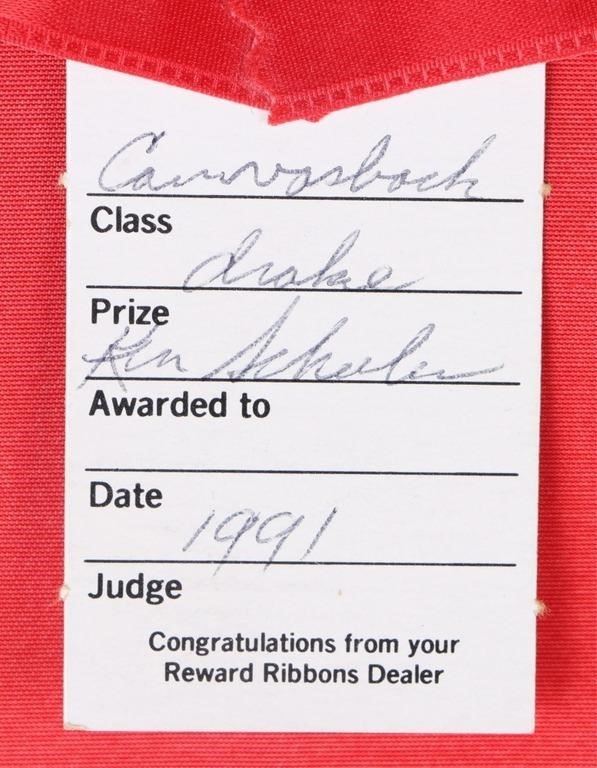 Canvasback
Class
drake
Prize
Ken Scheeler
Awarded to
Date
1991
Judge
Congratulations from your
Reward Ribbons Dealer